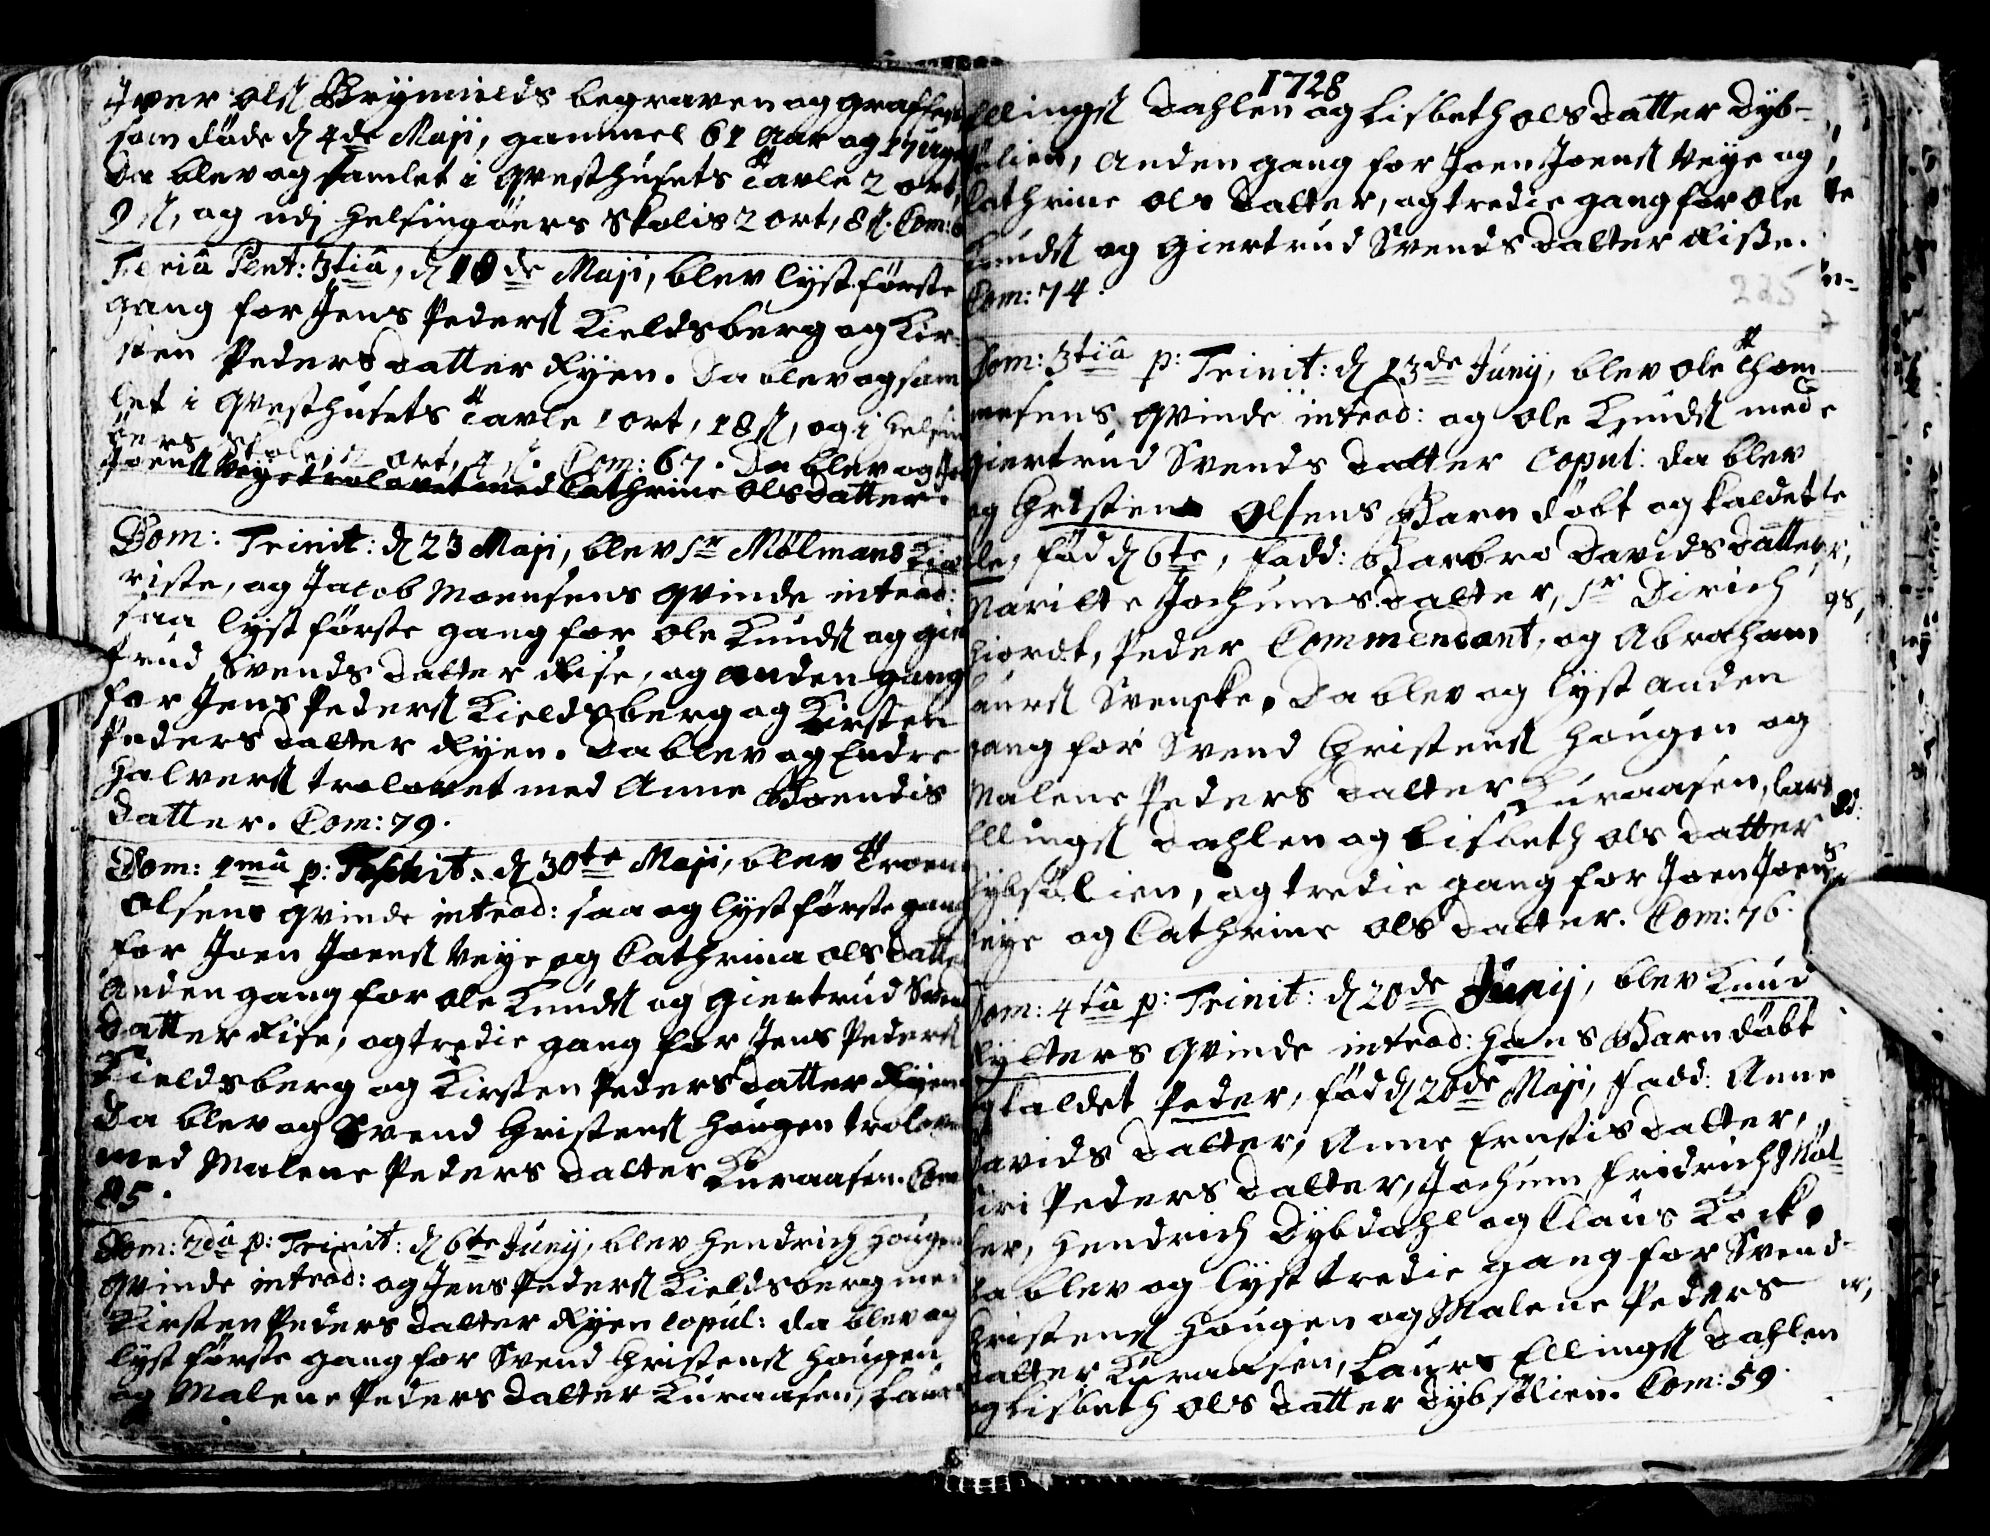 Iver Ols: Brynnilds begraven og graffest
som døde d 4de Maji, gammel 61 Aar og 17 uger
Da blev og samlet i Qvesthusets Tavle 2 ort,
9 s, og udj Helsingøers Skolis 2 ort, 8 s. Com:
Feriâ Pent: 3tiâ, d 18de Maji, blev lyst første
gang for Jens Peders: Kieldsberg og Kir-
sten Peders datter Ryen. Da blev og sam
let i Qvesthusets Tavle 1 ort, 18 s, og i Helsin
øers Skole, ort, s. Com: 67. Da blev og Jo
Joens: Veye trolovet med Cathrine Ols datter.
Dom: Trinit: d 23 Maji, blev Sr Mølmans
riste, og Jacob Monsens Qvinde introd:
saa lyst første gang for Ole Knuds: og Gier
trud Svends datter Rise, og anden gang
for Jens Peders: Kieldsberg og Kirsten
Peders datter Ryen. Da blev og Endre
Halvers: trolovet med Anne Boendis
datter. Com: 79.
Dom: 1mâ p: Trinit: d 30te Maji, blev Troen
Olsens Qvinde introd: saa og lyst første gang
for Joen Joens: Veye og Cathrina Ols datte
Anden gang for Ole Knuds: og Giertrud Sven
datter Rise, og tredie gang for Jens Peders:
Kieldsberg og Kirsten Peders datter Ryen
Da blev og Svend Christens: Hougen trolove
med Malene Peders datter Kuraasen. Com
85.
Dom: 2dâ p: Trinit: d 6te Junij, blev Hendrich Hougen
Qvinde introd: og Jens Peders: Kieldsberg med
Kirsten Peders datter Ryen copul: da blev og
lyst første gang for Svend Christens: Hougen
og Malene Peders datter Kuraasen, Laur
1728
Ellings: Dahlen og Lisbeth Ols datter Dyb-
sølien, anden gang for Joen Joens: Veye og
Cathrine Ols datter, og tredie gang for Ole
Knuds: og Giertrud Svends datter Risse.
Com: 74.
225
Dom: 3tiâ p: Trinit: d 13de Junij, blev Ole Thom
mesens Qvinde introd: og Ole Knuds: med
Giertrud Svends datter copul: da blev
og Christen Olsens Barn døbt og kaldet
Ole, fød d 6te, Fadd: Barbro Davids datter,
Marilte Jochums datter, Sr Dirich
Hiordt, Peder Commendant, og Abraham
Laurs: Svenske. Da blev og lyst anden
gang for Svend Christens: Hougen og
Malene Peders datter Kuraasen, Lars
Ellings: Dahlen og Lisbeth Ols datter
Dybsølien, og tredie gang for Joen Joens
Veye og Cathrine Ols datter. Com: 76.
Dom: 4tâ p: Trinit: d 20de Junij, blev Knud
Rylters Qvinde introd: Hans Barn døbt
og kaldet Peder, fød d 20de Maji, Fadd: Anne
Davids datter, Anne Ernstis datter,
Siri Peders datter, Jochum Fridrich Møl
ler, Hendrich Dybdahl og Claus Kock.
Da blev og lyst tredie gang for Svend
Christens: Hougen og Malene Peders
datter Kuraasen, Laurs Ellings: Dahlen
og Lisbeth Ols datter Dybsølien. Com: 59.